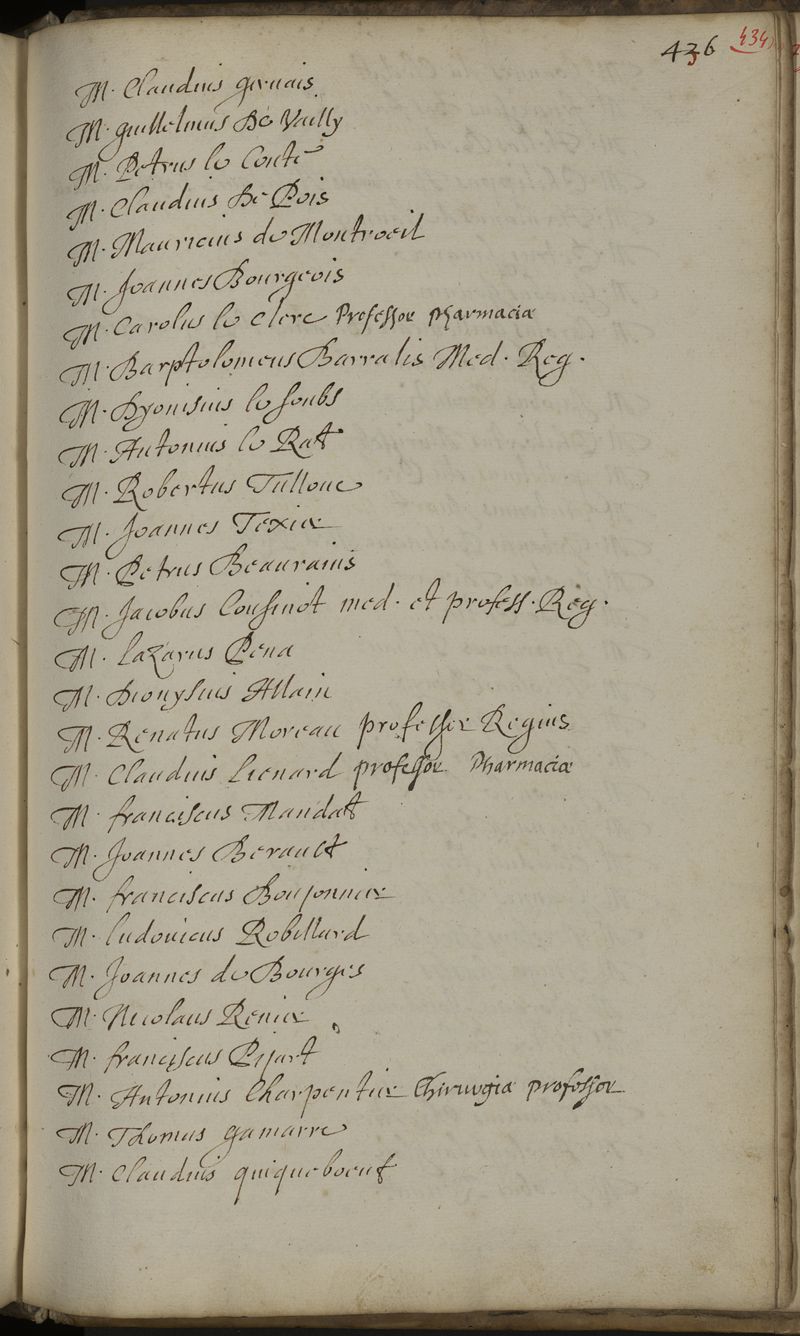 436 434
M. Claudius gervais
M. guillelmus De Vailly
M. Petrus le Conte
M. Claudius De Pois
M. Mauricius de Montroeil
M. Joannes Bourgeois
M. Carolus le clerc Professor pharmaciæ
M. Barptolomeus Barralis Med. Reg.
M. Dyonisius le soubs
M. Antonius le Ratt
M. Robertus Tulloue
M. Joannes Texier
M. Petrus Beaurains
M. Jacobus Cousinot med. et profess. Reg.
M. Lazarus Pena
M. Dionysius Allain
M. Renatus Moreau professor Regius
M. Claudius Lienard professor Pharmaciæ
M. franciscus Mandatt
M. Joannes Berault
M. franciscus Boujonnier
M. ludovicus Robillard
M. Joannes de Bourges
M. Nicolaus Renier
M. franciscus Pijart
M. Antonius Charpentier Chirurgiæ professor
M. Thomas gamarre
M. Claudius quiqueboeuf